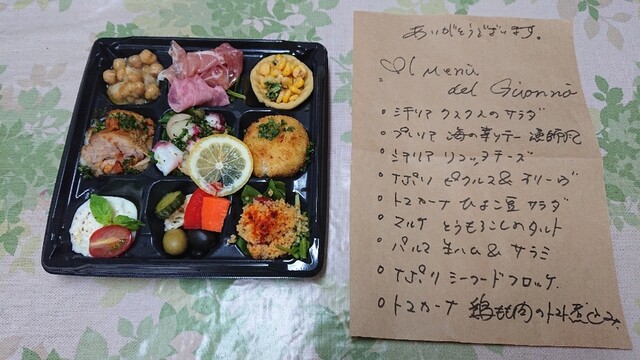 ありがとうございます。
Il Menù
del Giorno
シチリア クスクスのサラダ
プーリア 海の幸ソテー 漁師風
シチリア リコッタチーズ
ナポリ ピクルス&オリーブ
トスカーナ ひよこ豆 サラダ
マルケ とうもろこしのタルト
パルマ 生ハム&サラミ
ナポリ シーフードコロッケ.
トスカーナ 鶏もも肉のトマト煮込み